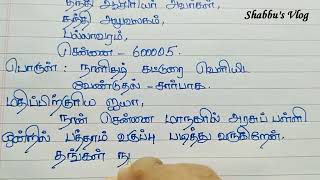 Shabbu's Vlog
தந்தி ஆசிரியர் அவர்கள்,
தந்தி அலுவலகம்,
பல்லாவரம்,
சென்னை - 600005.
பொருள் : நாளிதழ் கட்டுரை வெளியிட
வேண்டுதல் - சார்பாக.
மதிப்பிற்குரிய ஐயா,
நான் சென்னை மாநகரில் அரசுப் பள்ளி
ஒன்றில் பத்தாம் வகுப்பு படித்து வருகிறேன்.
தங்கள் ந